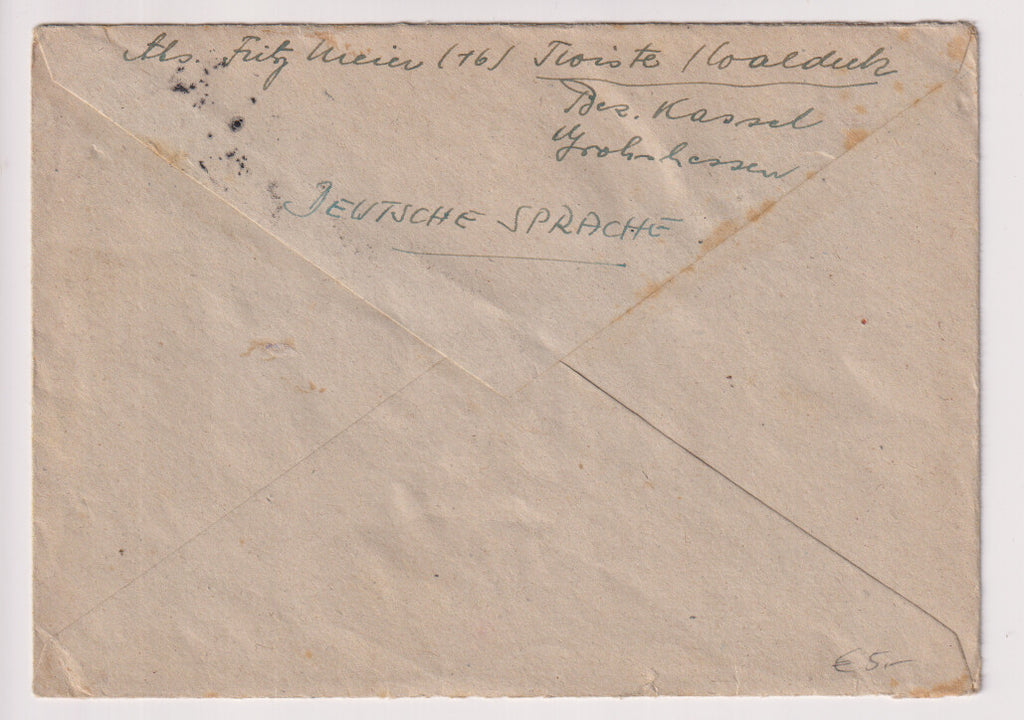 Abs. Fritz Meier (16) Twiste / Waldeck
Bez. Kassel
Grosshessen
DEUTSCHE SPRACHE
€ 5.-